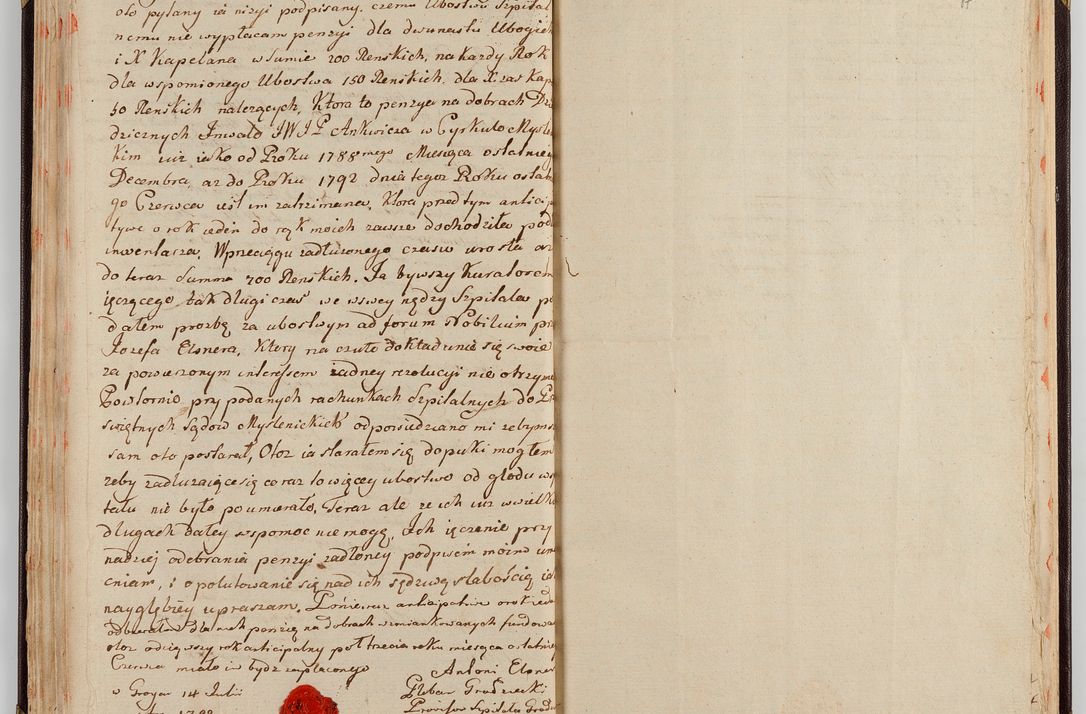 oto pytany ia niżyi podpisany. czemu Ubostwu Szpital
nemu nie wypłacam penzyi dla dwunastu Ubogich
i X Kapelana w Sumie 200 Renskich, na każdy Rok
dla wspomionego Ubostwa 150 Renskich. dla X. zaś Kap
50 Renskich należących, Ktora to penzya na dobrach Dzie
dzicznych Inwałd JWJP Ankwicza w Cyrkule Myśle
kim iuż iako od Roku 1788mego Miesiąca ostatniego
Decembra, aż do Roku 1792 dnia tegoż Roku ostat
go Czerwca iest im zatrzimana, Ktora przed tym antici
tywe o rok ieden do rąk moich zawsze dochodziła pod
inwentarza, W przeciągu zadłużonego czasu urosła aż
do teraz Summa 700 Renskich. Ja bywszy Kuratorem
ięczącego tak długi czas we wswey nędzy Szpitala po
dałem prozbę za ubostwym ad forum Nobilium prz
Jozefa Elsnera, Ktory na czułe dokładunie się swoie
za powierzonym interessem żadney rezolucyi nie otrzyma
Powtornie przy podanych rachunkach Szpitalnych do Prz
świętnych Sądow Myślenickich odpowiedziano mi zebym
sam oto postarał, Otoz ia starałem się dopuki mogłem
żeby zadłużaiące się coraz to więcey ubostwo od głodu w sz
talu nie było poumierało. Teraz ale że ich iuż w wielki
długach daley wspomoc nie mogę, Ich ięczenie przy
nadziei odebrania penzyi zadłoney podpisem moim um
cniam, i o politowanie się nad ich sędziwą słabością ia
naygłębiey upraszam. Ponieważ anticipative o rok ieden
odbierałem dla nich penzię na dobrach wmiankowanych fundowa
otoż odciąwszy rok anticipalny poł trzecia roku miesiąca ostatnie
Czerwca miało im bydz zapłaconego
Antoni Elsner
w Groycu 14 Julii
Pleban Grodziecki
1792
Prowisor Szpitala Grodz
17